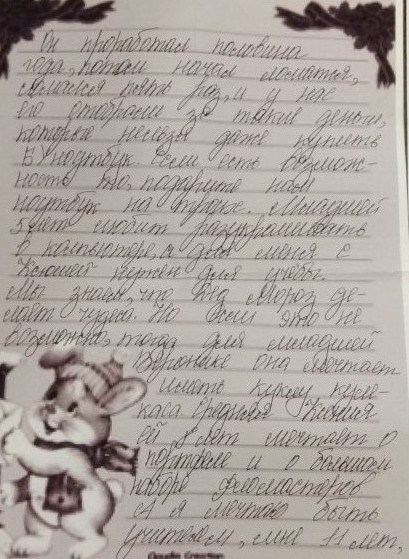 Он проработал половина
года, потом начал ломатся,
сломался пять раз, и у нас
его отобрали за такие деньги,
которые нельзя даже купить
Б/У ноутбук. Если есть возмож-
ность то, подарите нам
ноутбук на троих. Младшей
5 лет любит разукрашивать
в компьютере, а для меня с
Ксюшей нужен для учебы.
Мы знаем, что Дед Мороз де-
лает чудеса. Но если это не
возможно, тогда для младшей
Веронике она мечтает
иметь куклу
Средняя Ксения
ей 8 лет мечтает о
портфеле и о большом
наборе фломастеров
А я мечтаю быть
учителем, мне 11 лет,